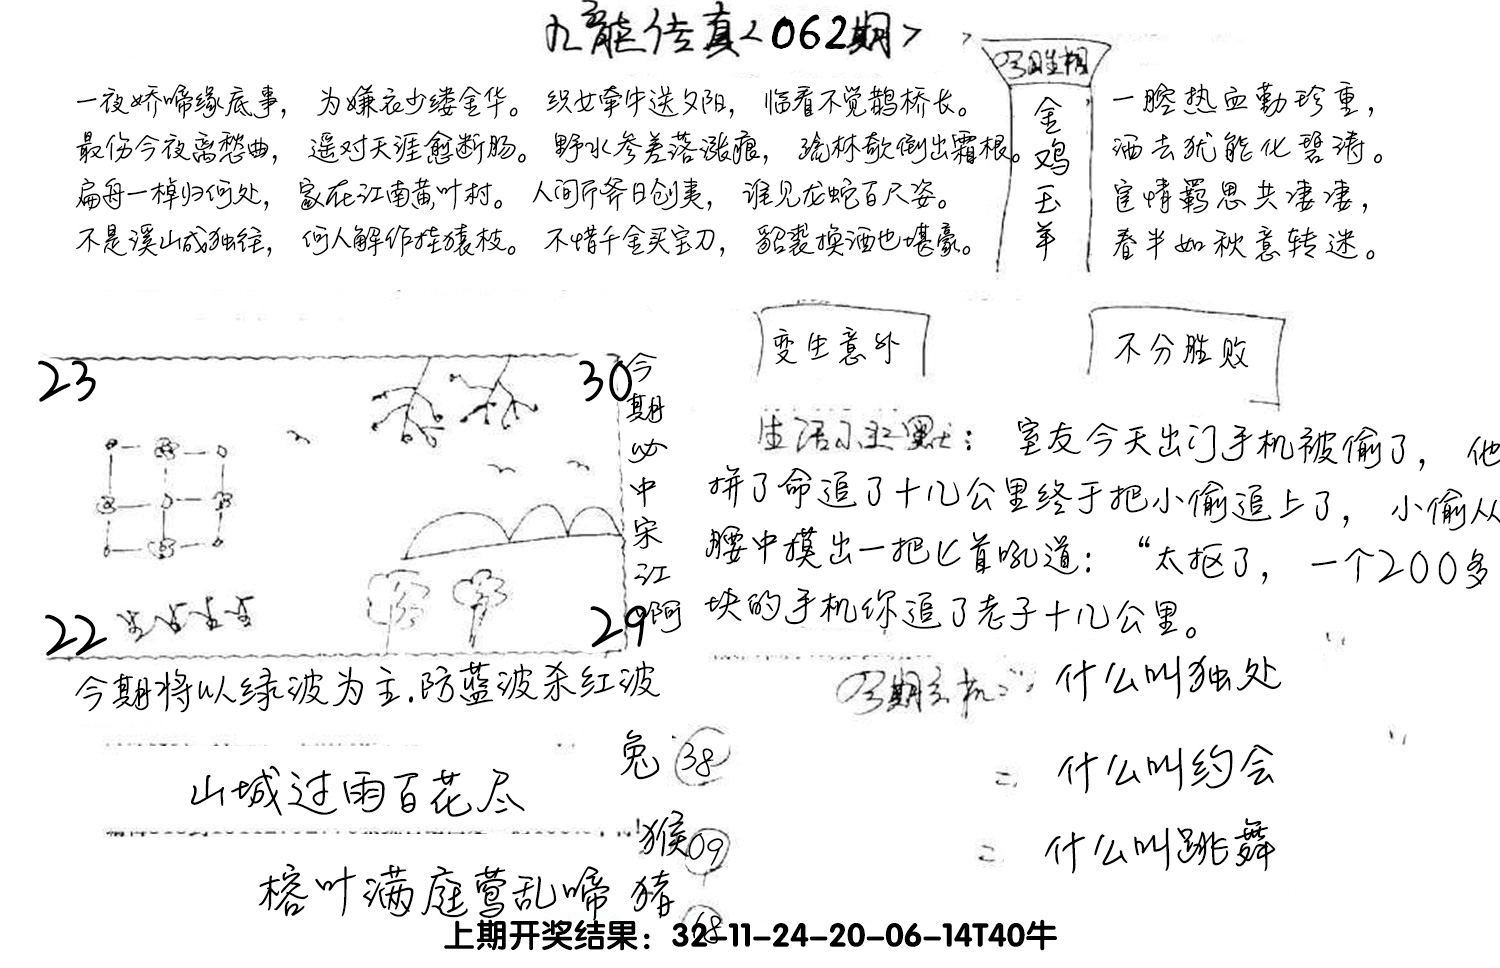 九龙传真<062期>
一夜娇啼缘底事，为嫌衣少缕金华。织女牵牛送夕阳，临看不觉鹊桥长。
最伤今夜离愁曲，遥对天涯愈断肠。野水参差落涨痕，疏林欹倒出霜根。
扁舟一棹归何处，家在江南黄叶村。人间斤斧日创夷，谁见龙蛇百尺姿。
不是溪山成独往，何人解作挂猿枝。不惜千金买宝刀，貂裘换酒也堪豪。
金鸡玉羊
一腔热血勤珍重，
洒去犹能化碧涛。
宦情羁思共凄凄，
春半如秋意转迷。
变生意外
不分胜败
23
30
22
29
今期必中宋江啊
生活小幽默：室友今天出门手机被偷了，他
拼了命追了十几公里终于把小偷追上了，小偷从
腰中摸出一把匕首吼道：“太抠了，一个200多
块的手机你追了老子十几公里。
今期将以绿波为主.防蓝波杀红波
今期玄机：什么叫独处
二 什么叫约会
二 什么叫跳舞
山城过雨百花尽
榕叶满庭莺乱啼
兔 38
猴 09
猪
上期开奖结果：32-11-24-20-06-14T40牛